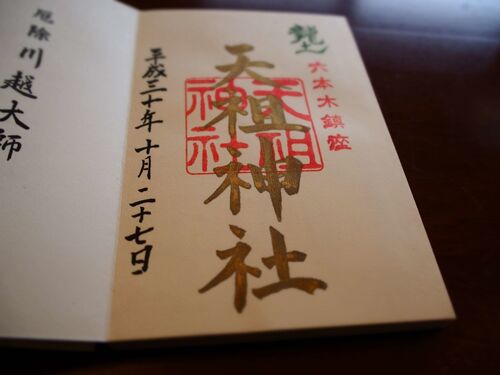 龍土
六本木鎮座
天祖神社
天祖神社
平成三十年十月二十七日
厄除川越大師